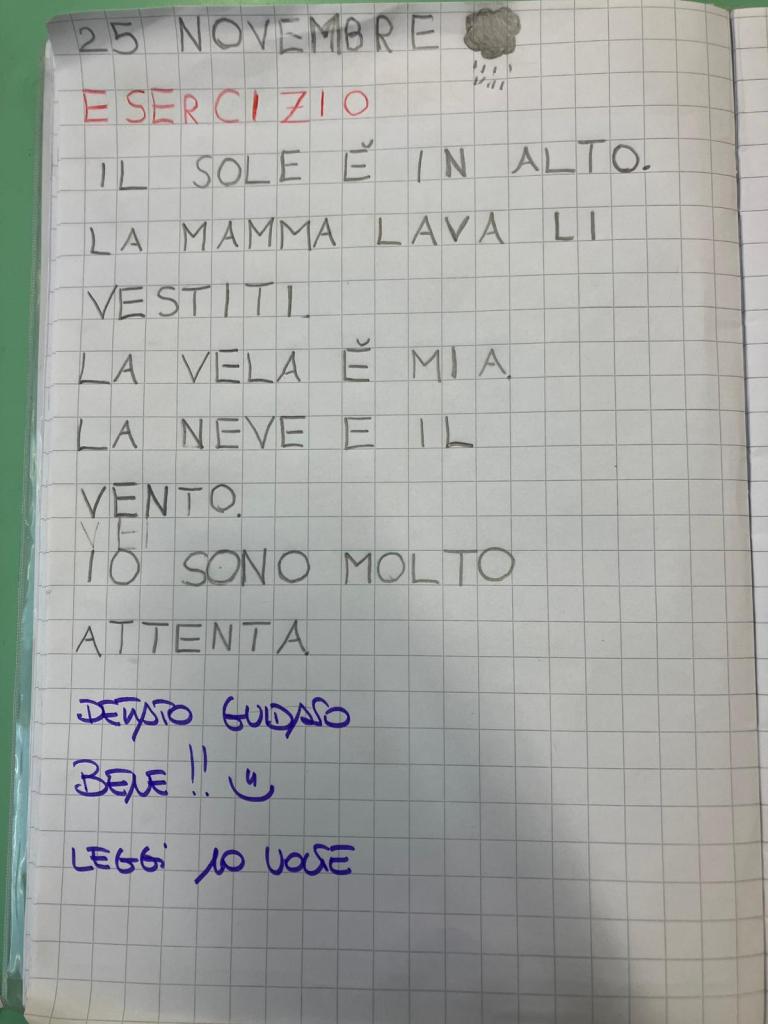 25 NOVEMBRE
ESERCIZIO
IL SOLE Ĕ IN ALTO.
LA MAMMA LAVA LI
VESTITI.
LA VELA Ĕ MIA.
LA NEVE E IL
VENTO.
VE
IO SONO MOLTO
ATTENTA
DETTATO GUIDATO
BENE !!
LEGGI 10 VOLTE